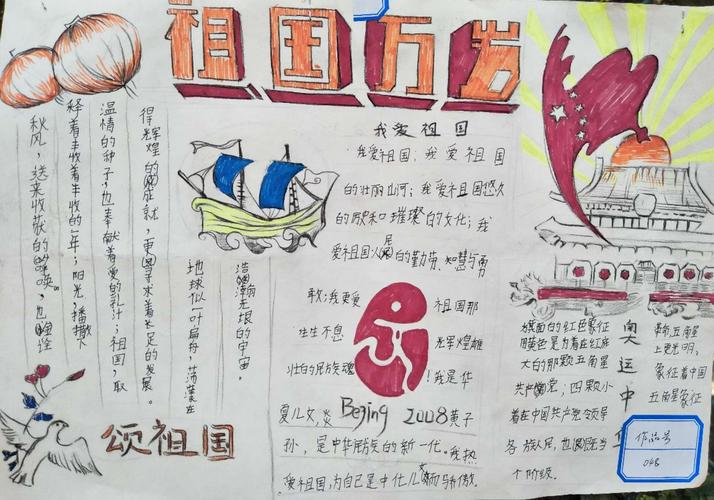 祖国万岁
秋风，送来收获的呼唤。也
释着丰收着丰收的年；阳光播撒下
温情的种子，也奉献着爱的乳汁；祖国，取
得辉煌的成就，更寻求着长足的发展。
地球似一叶扁舟，荡漾在
浩瀚无垠的宇宙。
颂祖国
我爱祖国
我爱祖国；我爱祖国
的壮丽山河；我爱祖国悠久
的历和璀璨的文化；我
爱祖国人民的勤劳、知慧与勇
敢；我更爱 祖国那
生生不息 光辉煌雕
壮的民族魂 ！我是华
夏儿女，炎 Beijing 2008 黄子
孙，是中华民族的新一代。我热
爱祖国，为自己是中仕儿女而骄傲
旗面的红色象征
用黄色是为着在红底
大的那颗五角星
共产党；四颗小
着在中国共产党令领导
各族人民，也
个阶级。
奥运中
五角星
上更光明，
象征着中国
五角星象征
作品号
048